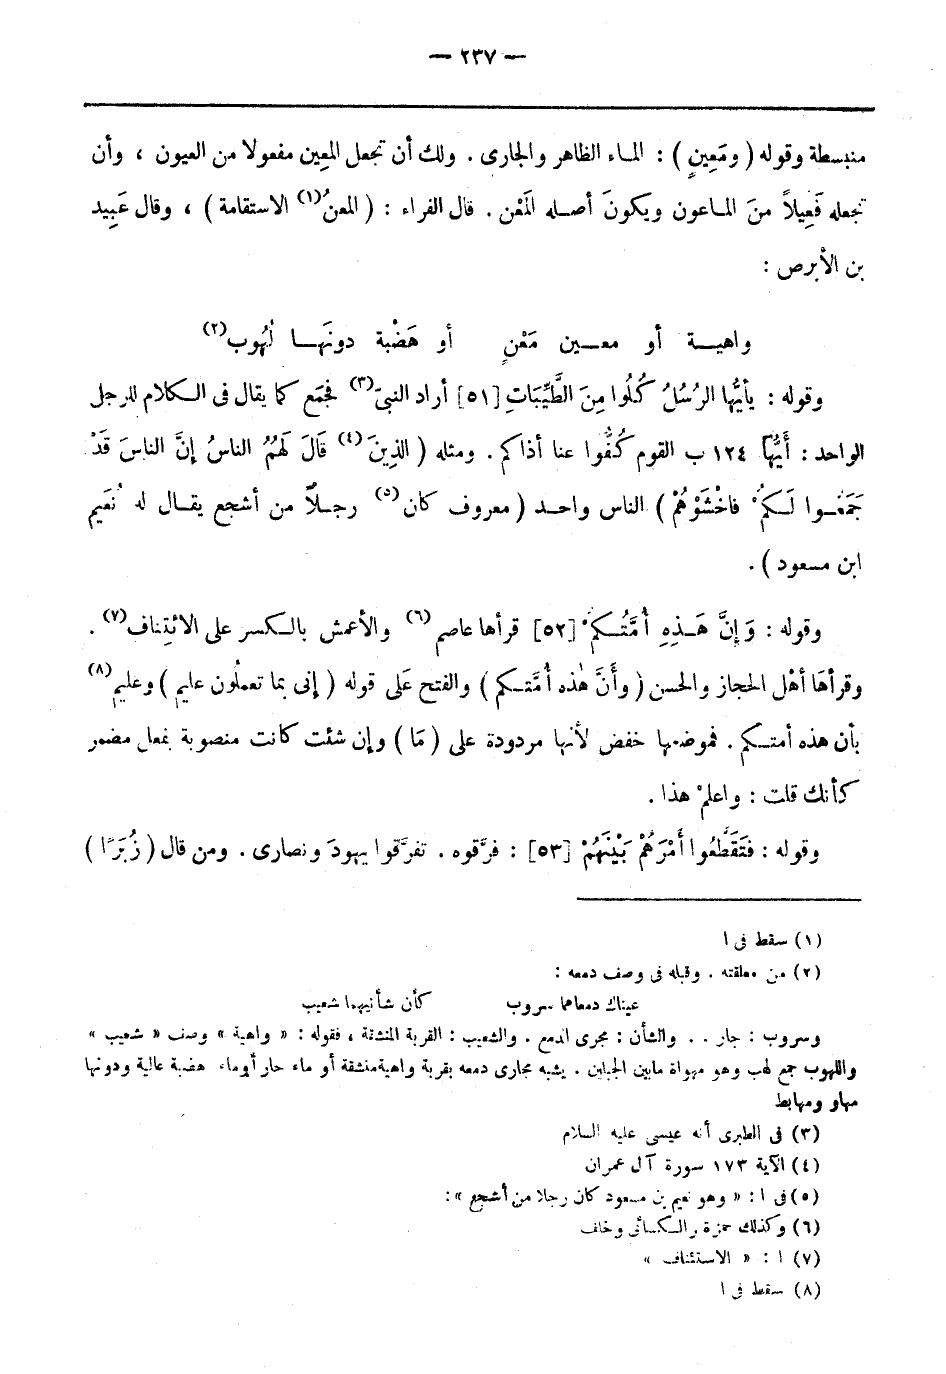 — ٢٣٧ —
منبسطة وقوله ( ومَعِينٍ ) : الماء الظاهر والجارى . ولك أن تجعل المعِين مفعولا من العيون ، وأن
تجعله فَعِيلاً منَ الماعون ويكونَ أصله المَعْن . قال الفراء : ( المعنُ(١) الاستقامة ) ، وقال عَبِيد
بن الأبرص :
واهية أو معين مَعْنٍ أو هَضْبة دونَها لُهُوب(٢)
وقوله : يأيُّها الرُسُلُ كُلُوا مِنَ الطَّيِّبَاتِ [٥١] أراد النبىّ(٣) فجمَع كما يقال فى الكلام للرجل
الواحد : أَيُّها ١٢٤ ب القوم كُفُّوا عنا أذاكم . ومثله ( الذِينَ(٤) قَالَ لَهُمُ الناسُ إنَّ الناسَ قَدْ
جَمَعُوا لَكُمْ فاخْشَوْهُمْ ) الناس واحد ( معروف كان(٥) رجلاً من أشجع يقال له نُعَيم
ابن مسعود ) .
وقوله : وَإِنَّ هَذِهِ أُمَّتُكمْ [٥٢] قرأها عاصم(٦) والأعمش بالكسر على الائتِناف(٧) .
وقرأهَا أهْل الحجاز والحسن ( وأَنَّ هٰذه أُمَّتكم ) والفتح عَلى قوله ( إنى بما تعملُون عليم ) وعليم(٨)
بأن هذه أمتكم . فموضعها خفض لأنها مردودة على ( مَا ) وإن شئت كانت منصوبة بفعل مضمر
كأنك قلت : واعلمْ هذا .
وقوله : فتَقَطَّعُوا أَمْرَهُمْ بَيْنَهُمْ [٥٣] : فرَّقوه . تفرَّقوا يهودَ ونصارى . ومن قال ( زُبَرًا )
(١) سقط فى ا
(٢) من معلقته . وقبله فى وصف دمعه :
عيناك دمعاهما سروب كأن شأنيهما شعيب
وسروب : جار .. والشأن : مجرى الدمع . والشعيب : القربة المنشقة ، فقوله : « واهية » وصف « شعيب »
واللهوب جمع لهب وهو مهواة مابين الجبلين . يشبه مجارى دمعه بقربة واهية منشقة أو ماء حار أو ماء هضبة عالية ودونها
مهاو ومهابط
(٣) فى الطبرى أنه عيسى عليه السلام
(٤) الآية ١٧٣ سورة آل عمران
(٥) فى ا : « وهو نعيم بن مسعود كان رجلا من أشجع » :
(٦) وكذلك حمزة والكسائى وخلف
(٧) ا : « الاستئناف »
(٨) سقط فى ا